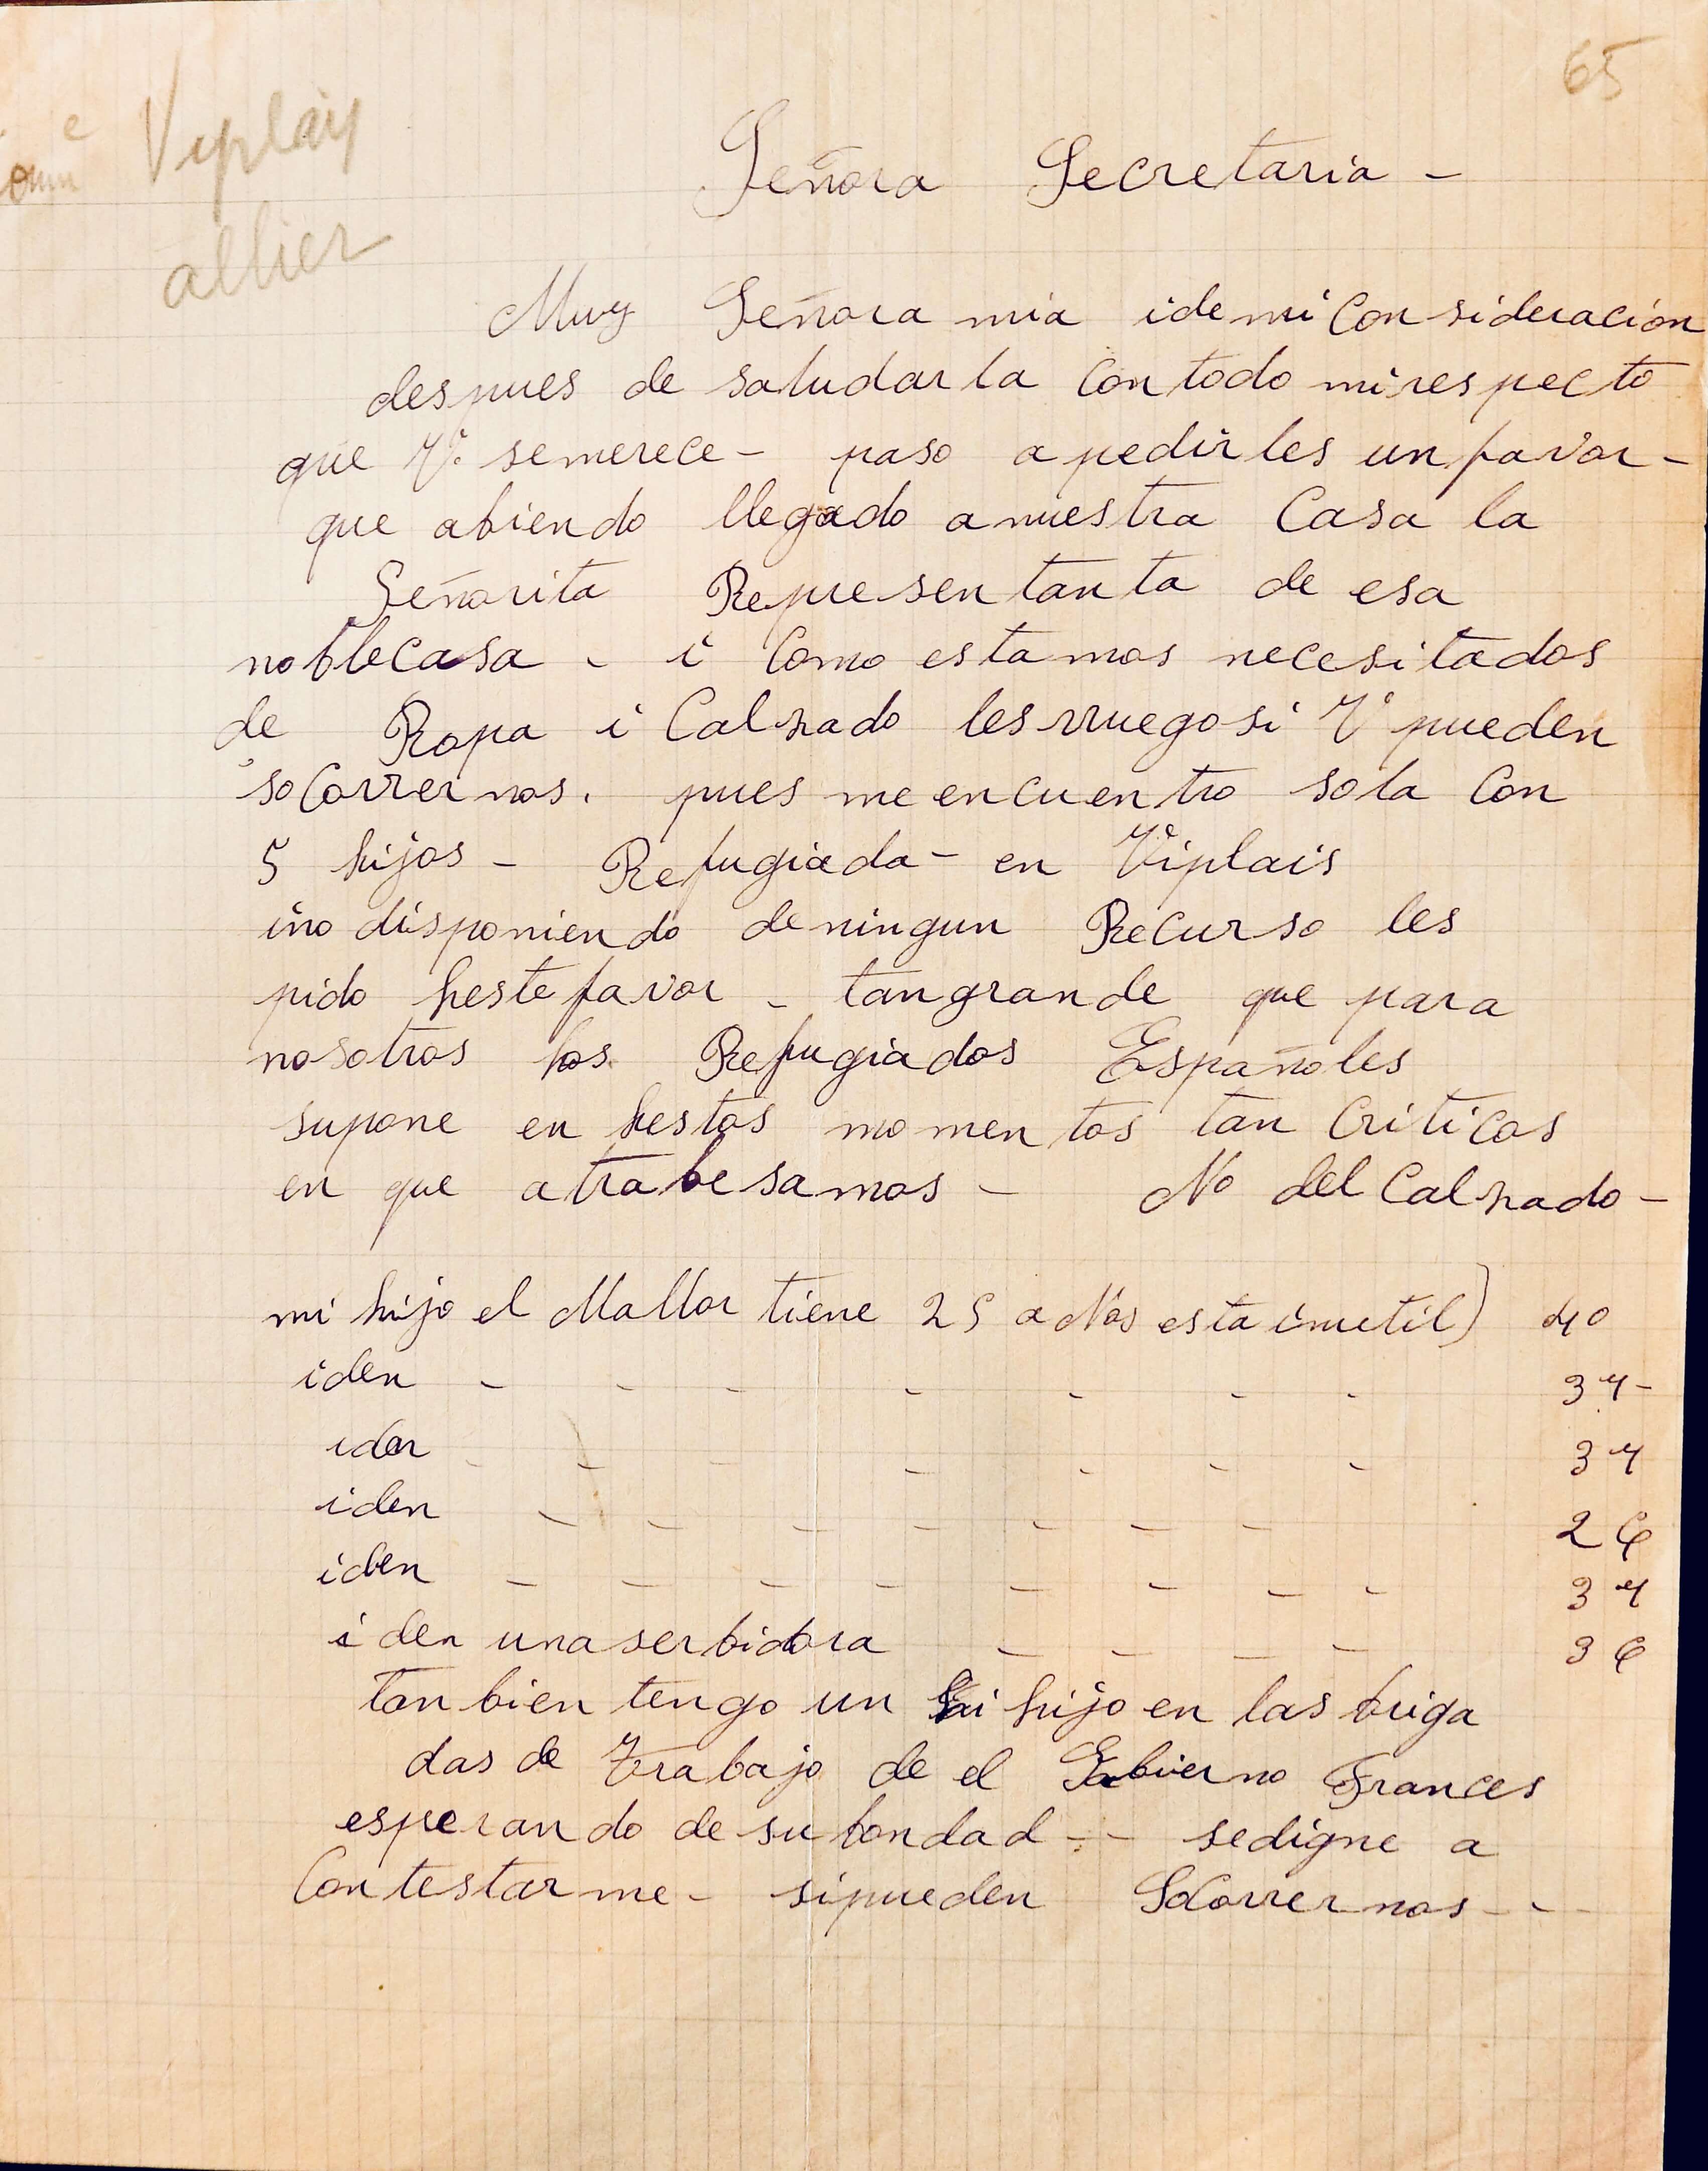 65
Viplaiy
allier
Señora Secretaria -
Muy Señora mia i de mi Consideración
despues de saludarla Con todo mi respecto
que V. se merece - paso a pedirles un favor -
que abiendo llegado a nuestra Casa la
Señorita Representanta de esa
noble casa - i Como estamos necesitados
de Ropa i Calzado les rruego si V pueden
soCorrernos. pues me encuentro sola Con
5 hijos - Refugiada - en Viplais
i no disponiendo de ningun Recurso les
pido heste favor - tan grande que para
nosotros los Refugiados Españoles
supone en hestos momentos tan Criticos
en que atrabesamos - No del Calzado -
mi hijo el Mallor tiene 25 aNos esta inutil) 40
iden - - - - - - - 37 -
iden - - - - - - - 37
iden - - - - - - - 26
iden - - - - - - - - 37
iden una serbidora - - - - 36
tanbien tengo un hijo en las briga
das de Trabajo de el Gobierno Frances
esperando de su bondad - - se digne a
Contestarme - si pueden SoCorrernos - -